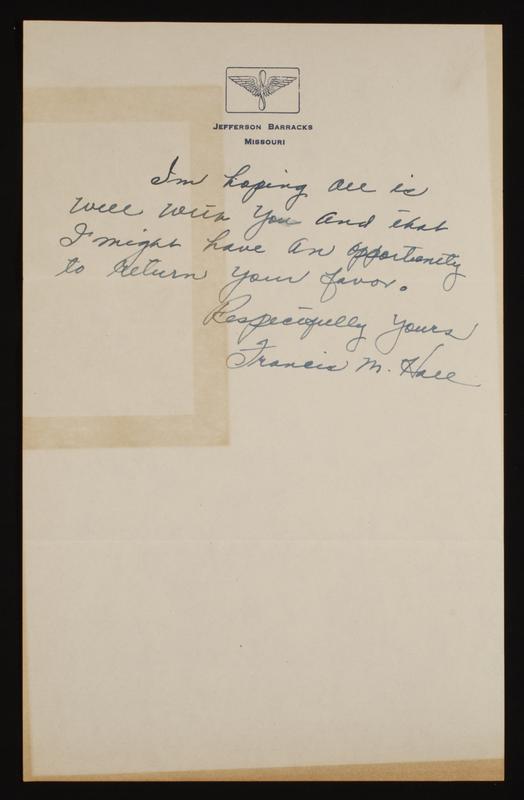 Jefferson Barracks
Missouri
I'm hoping all is
well with you and that
I might have an opportunity
to return your favor.
Respectfully Yours
Francis M. Hall